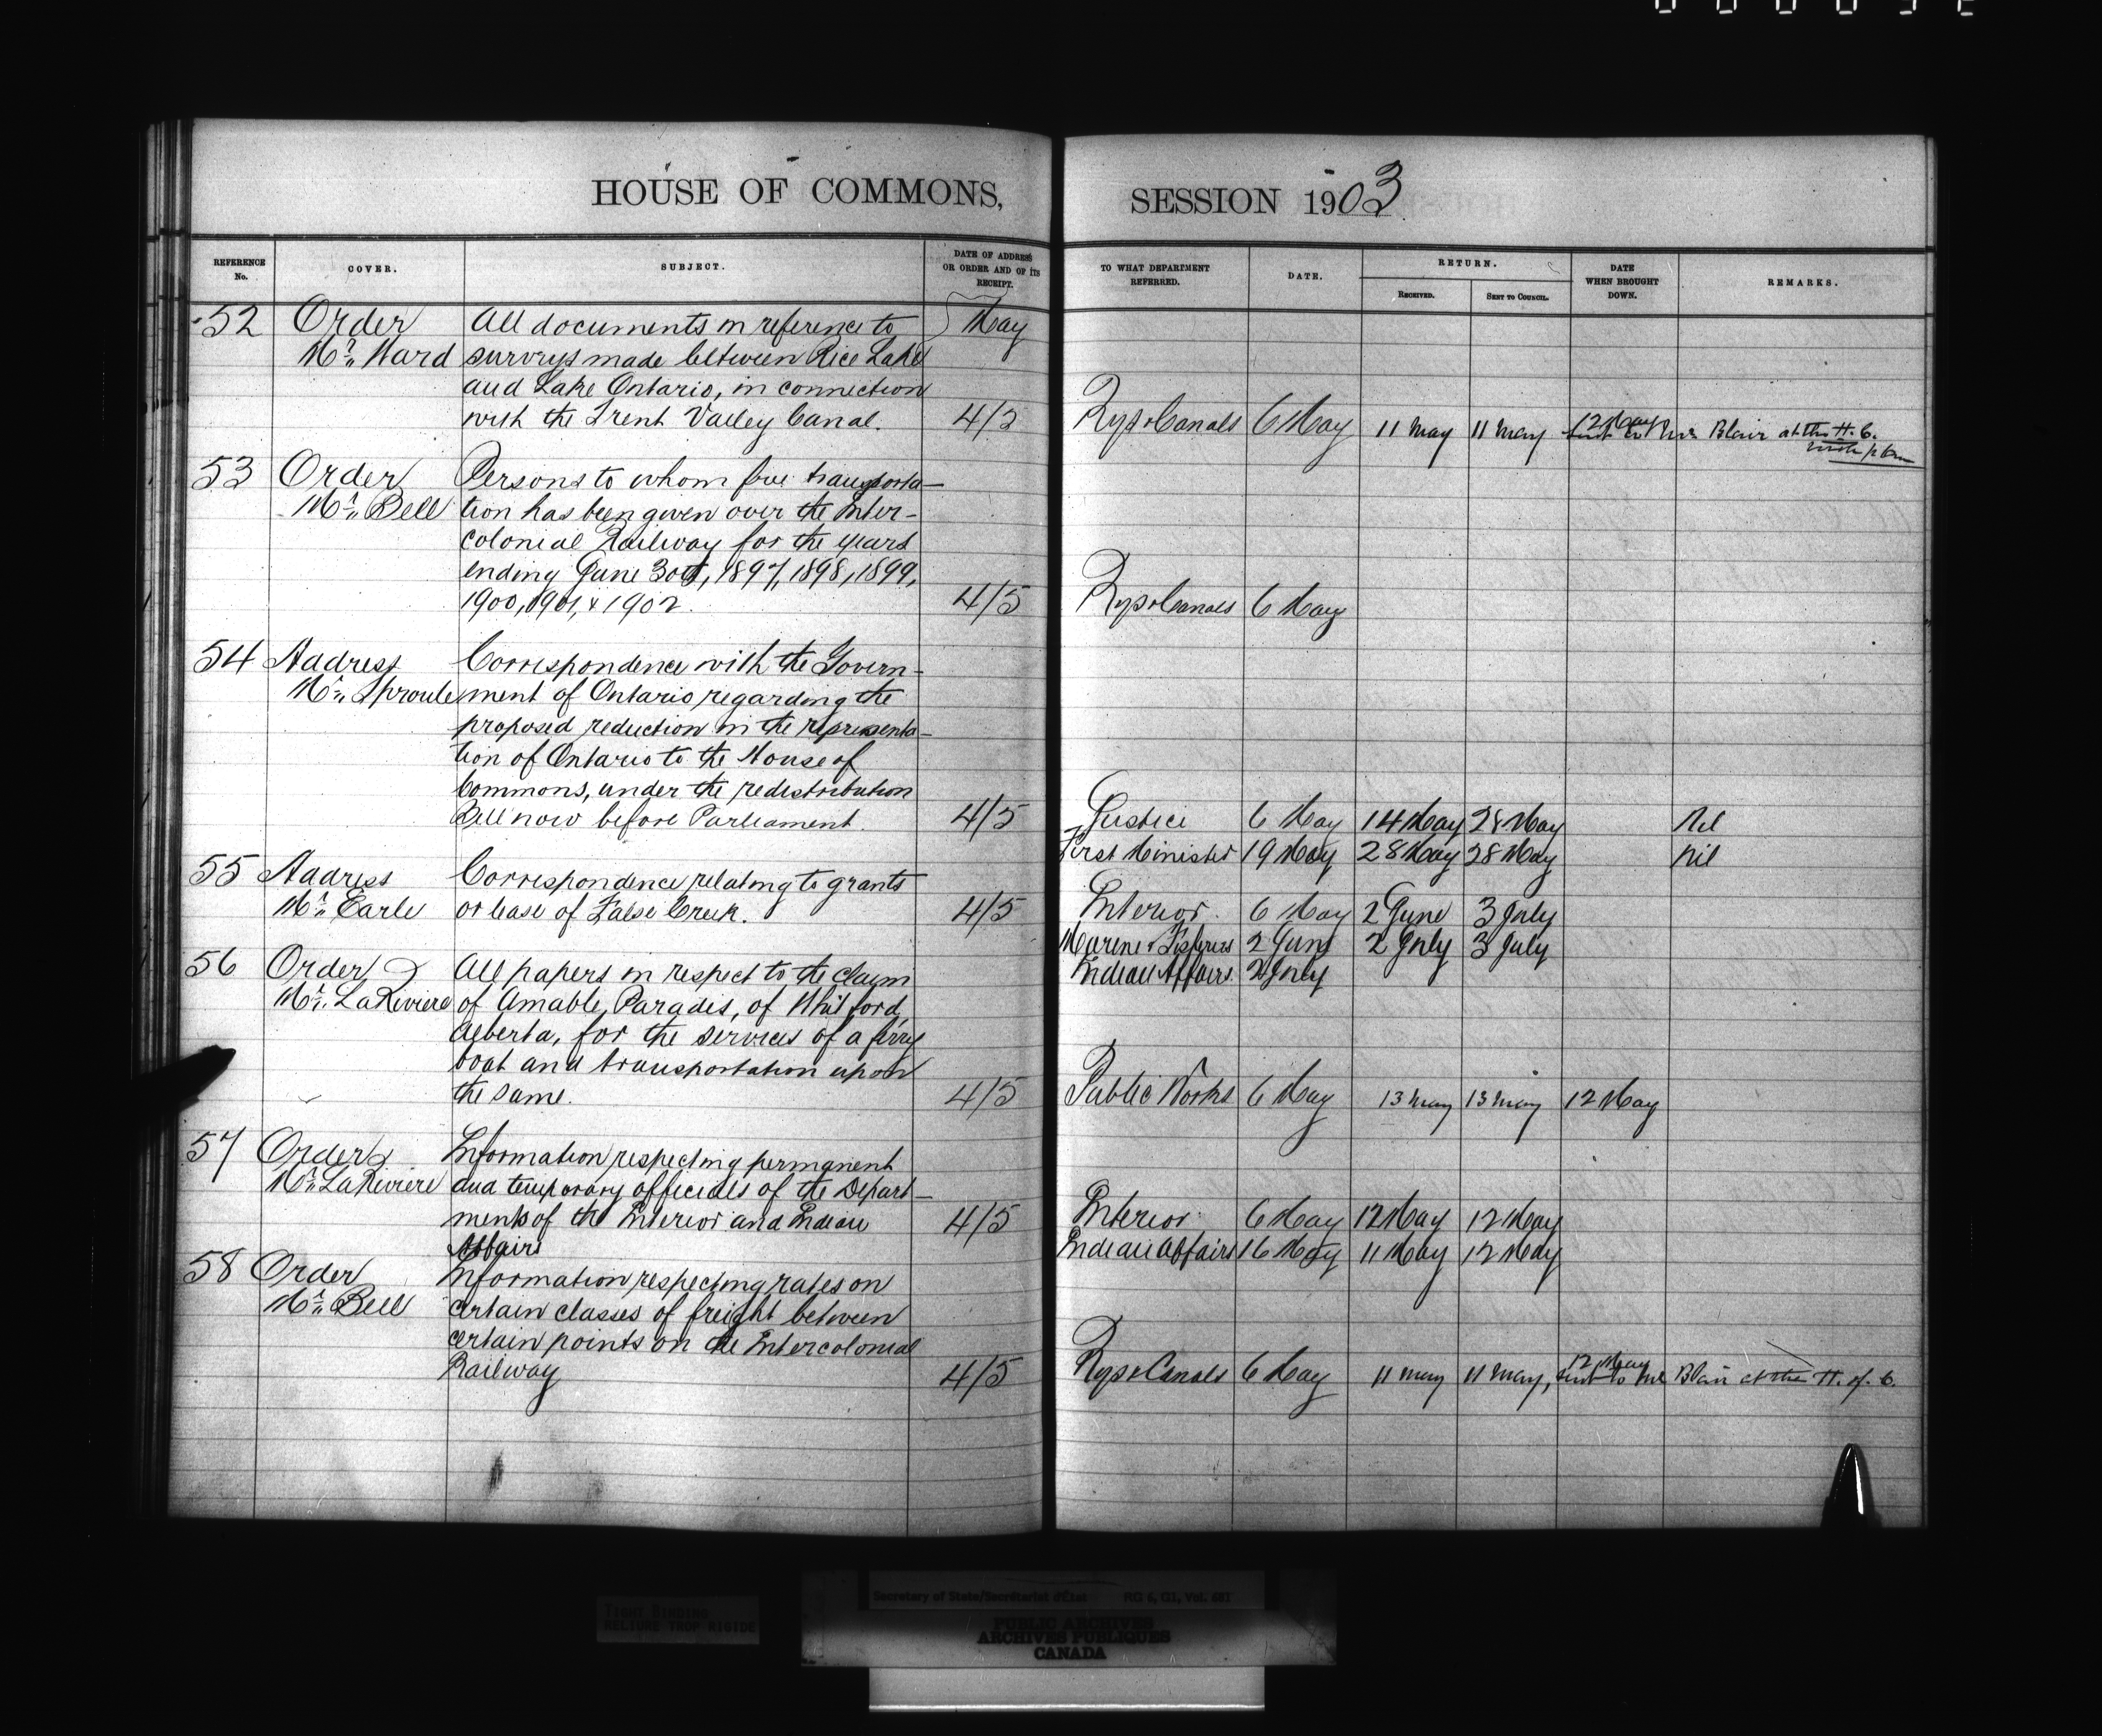 HOUSE OF COMMONS,
REFERENCE No. COVER. SUBJECT. DATE OF ADDRESS OR ORDER AND OF ITS RECEIPT.
52 Order All documents in reference to May
Mr. Ward surveys made between Rice Lake
and Lake Ontario, in connection
with the Trent Valley Canal. 4/5
53 Order Persons to whom free transporta-
Mr. Bell tion has been given over the Inter-
colonial Railway for the years
ending June 30th, 1897, 1898, 1899,
1900, 1901, & 1902. 4/5
54 Address Correspondence with the Govern-
Mr. Sproule ment of Ontario regarding the
proposed reduction in the representa-
tion of Ontario to the House of
Commons, under the redistribution
Bill now before Parliament. 4/5
55 Address Correspondence relating to grants
Mr. Earle or lease of False Creek. 4/5
56 Order All papers in respect to the claim
Mr. LaRiviere of Amable Paradis, of Whitford,
Alberta, for the services of a ferry
boat and transportation upon
the same. 4/5
57 Order Information respecting permanent
Mr. LaRiviere and temporary officials of the Depart-
ments of the Interior and Indian 4/5
Affairs
58 Order Information respecting rates on
Mr. Bell certain classes of freight between
certain points on the Intercolonial
Railway 4/5
SESSION 1903
TO WHAT DEPARTMENT REFERRED. DATE. RETURN. RECEIVED. SENT TO COUNCIL. DATE WHEN BROUGHT DOWN. REMARKS.
12 May
Rys & Canals 6 May 11 May 11 May sent to Mr. Blair at the H. C.
with plan
Rys & Canals 6 May
Justice 6 May 14 May 28 May Nil
First Minister 19 May 28 May 28 May Nil
Interior 6 May 2 June 3 July
Marine & Fisheries 2 June 2 July 3 July
Indian Affairs 2 July
Public Works 6 May 13 May 13 May 12 May
Interior 6 May 12 May 12 May
Indian Affairs 16 May 11 May 12 May
12 May
Rys & Canals 6 May 11 May 11 May, sent to Mr Blair at the H. of C.
TIGHT BINDING
RELIURE TROP RIGIDE
Secretary of State/Secrétariat d'État RG 6, G1, Vol. 681
PUBLIC ARCHIVES
ARCHIVES PUBLIQUES
CANADA